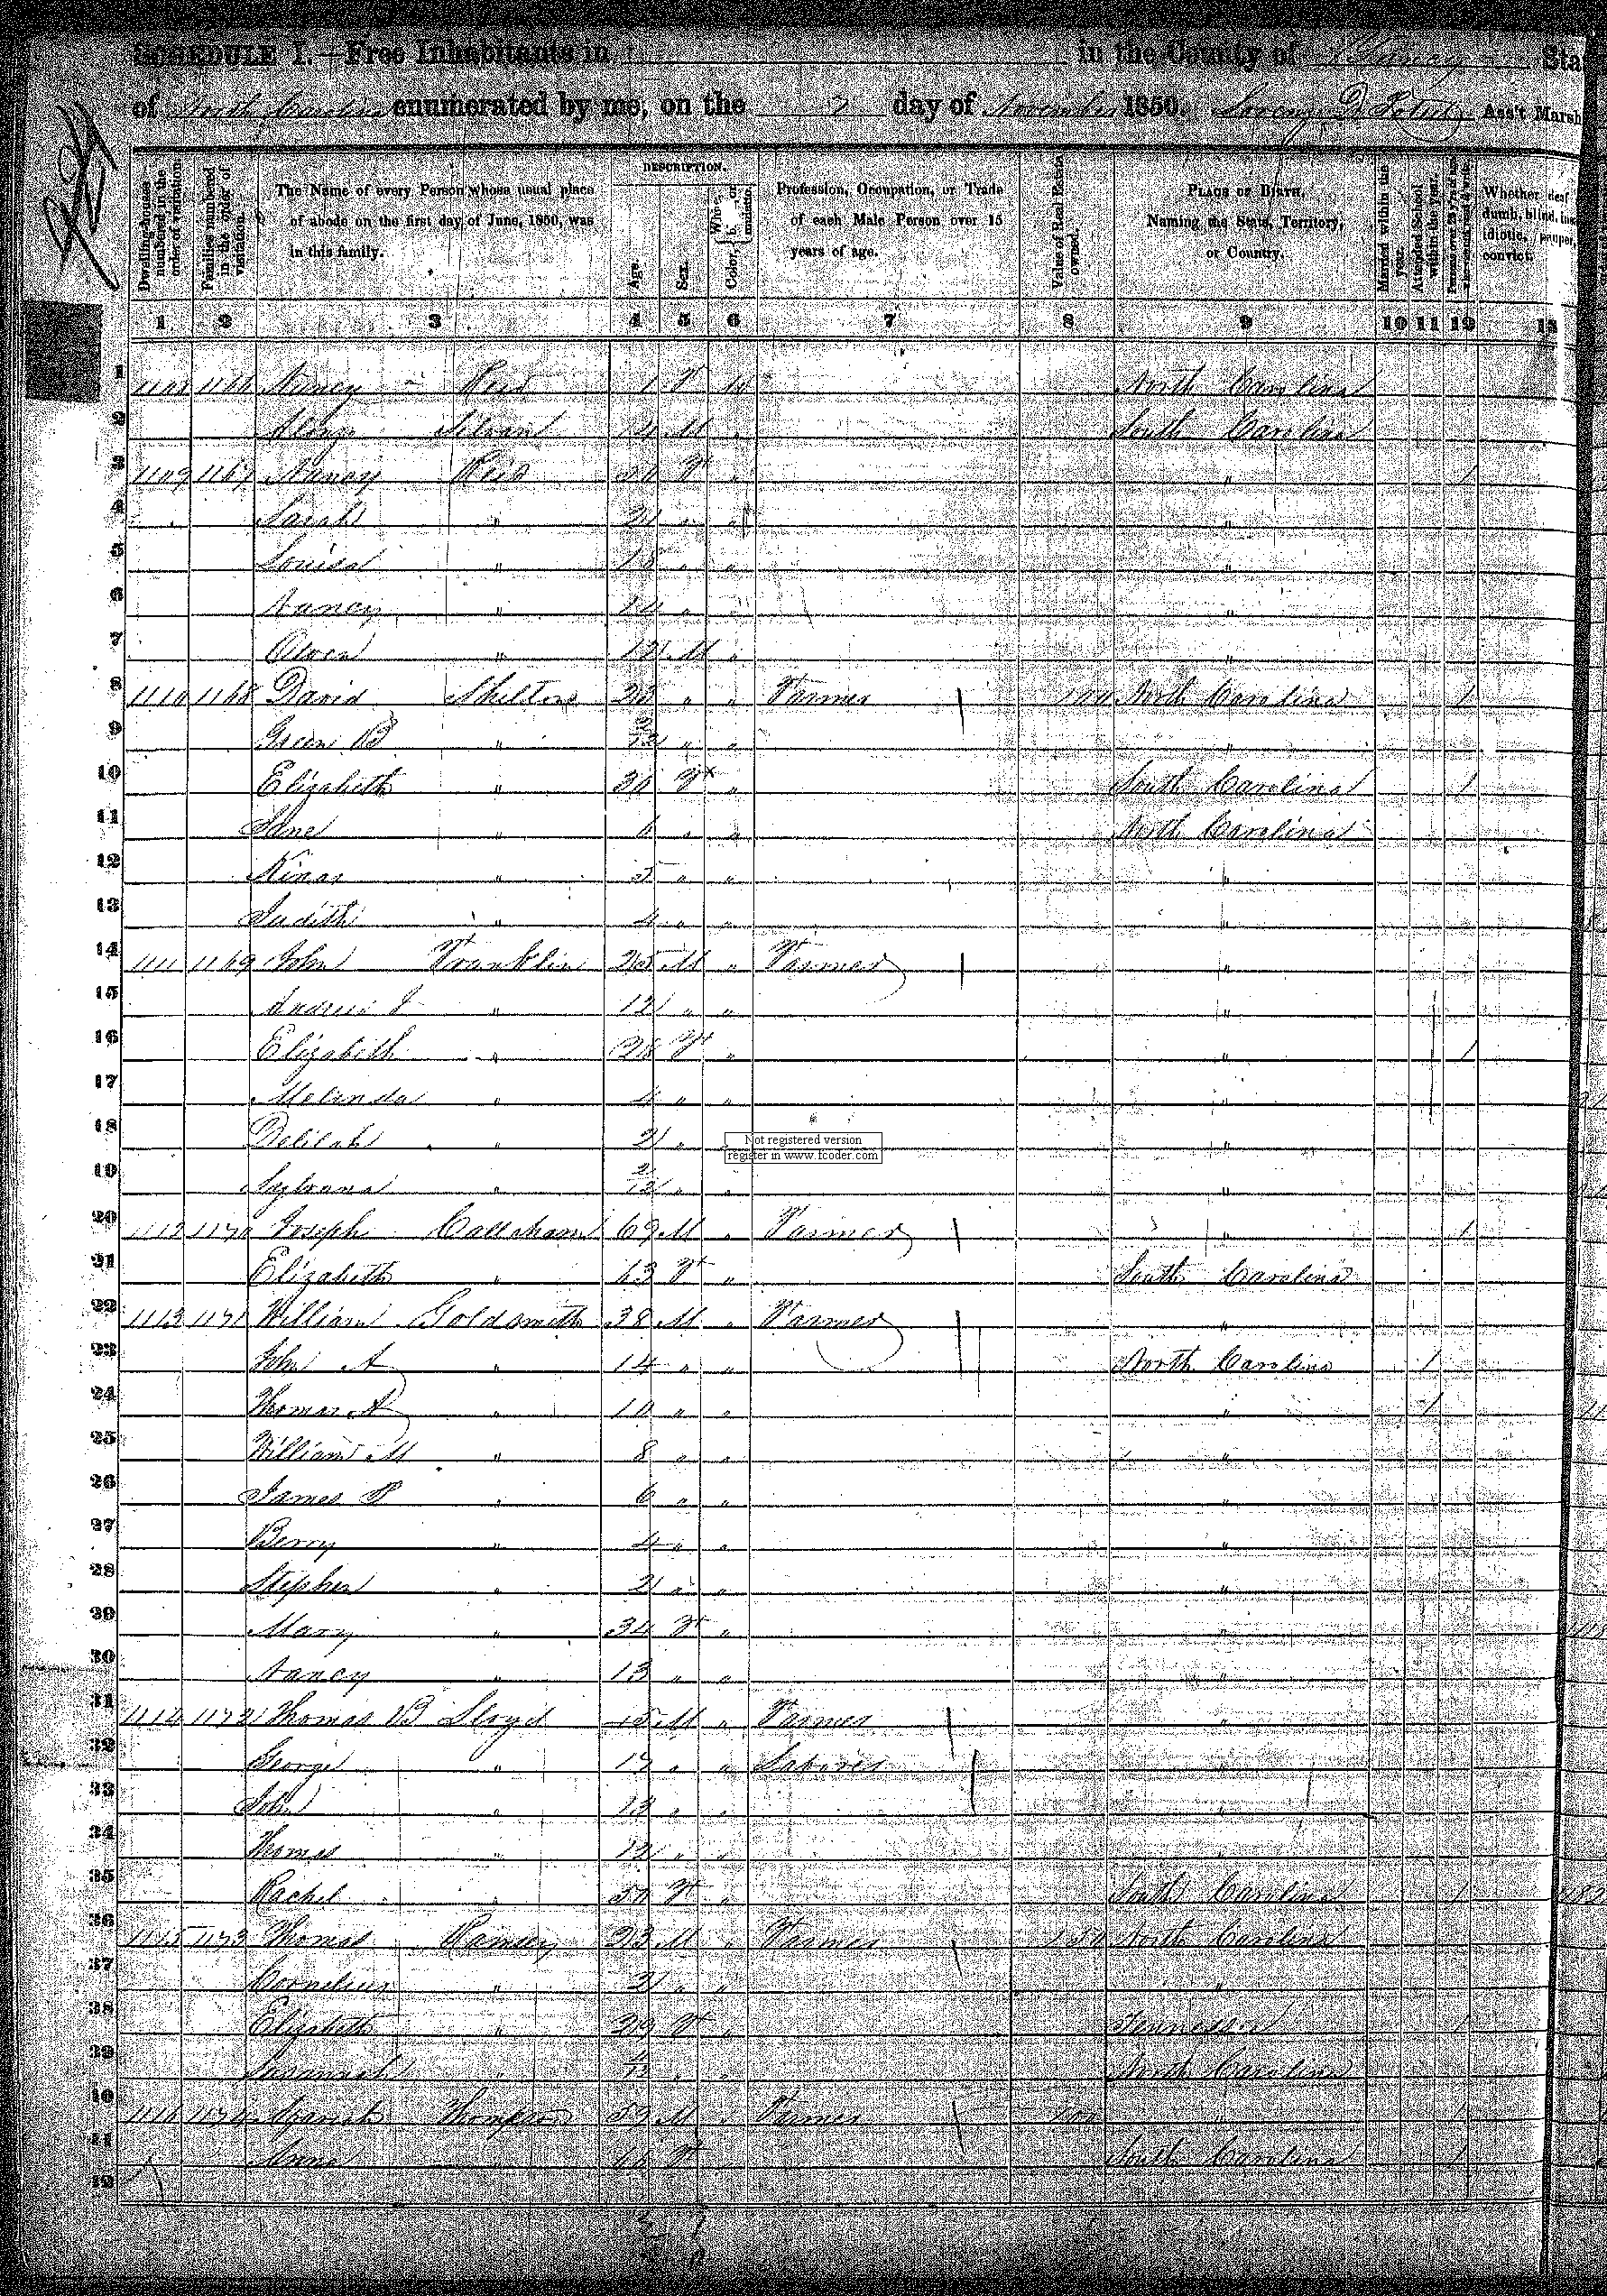 SCHEDULE I.—Free Inhabitants in in the County of Yancy Sta
of North Carolina enumerated by me, on the 7 day of November 1850. Ass't Marsh
Dwelling-houses numbered in the order of visitation.
Families numbered in the order of visitation.
The Name of every Person whose usual place of abode on the first day of June, 1850, was in this family.
DESCRIPTION.
Age.
Sex.
Color,
Profession, Occupation, or Trade of each Male Person over 15 years of age.
Value of Real Estate owned.
PLACE OF BIRTH,
Naming the State, Territory, or Country.
Married within the year.
Attended School within the year.
Whether deaf dumb, blind, idiotic, pauper, convict.
1 2 3 4 5 6 7 8 9 10 11 12 13
1 Nancy Reid 1 F W North Carolina
2 14 M " South Carolina
3 1109 1167 Nancy Reid F " " 1
4 Sarah " 21 " " "
5 Louisa " " " "
6 Nancy " 14 " " "
7 " 12 M " "
8 1110 1168 David Shelton " " Farmer 100 North Carolina 1
9 Green B " 3/12 " " "
10 Elizabeth " 30 F " South Carolina 1
11 Jane " 6 " " North Carolina
12 " 5 " " "
13 Judith " 4 " " "
14 1111 1169 John Franklin 25 M " Farmer "
15 Andrew J " 12 " " "
16 Elizabeth " 28 F " " 1
17 Melinda " 4 " " "
18 Delilah " 2 " "
Not registered version
register in www.fcoder.com
19 Sylvana " 2/12 " " "
20 1112 1170 Joseph Callaham 69 M " Farmer " 1
21 Elizabeth " 63 F " South Carolina
22 1113 1171 William Goldsmith 38 M " Farmer "
23 John A " 14 " " North Carolina 1
24 Thomas A " 10 " " " 1
25 William M " 8 " " "
26 James P " 6 " " "
27 Berry " 4 " " "
28 Stephen " 2 " " "
29 Mary " 34 F " "
30 Nancy " 13 " " "
31 1114 1172 Thomas B Lloyd M " Farmer "
32 George " 17 " " Laborer "
33 John " 13 " " "
34 Thomas " 12 " " "
35 Rachel " 50 F " South Carolina 1
36 1115 1173 Thomas Ramsey 23 M " Farmer 150 North Carolina
37 Cornelius " 2 " " "
38 Elizabeth " 29 F " Tennessee 1
39 Susannah " " " North Carolina
40 1116 1174 Thompson M " Farmer 100 " 1
41 Anna " F South Carolina 1
42